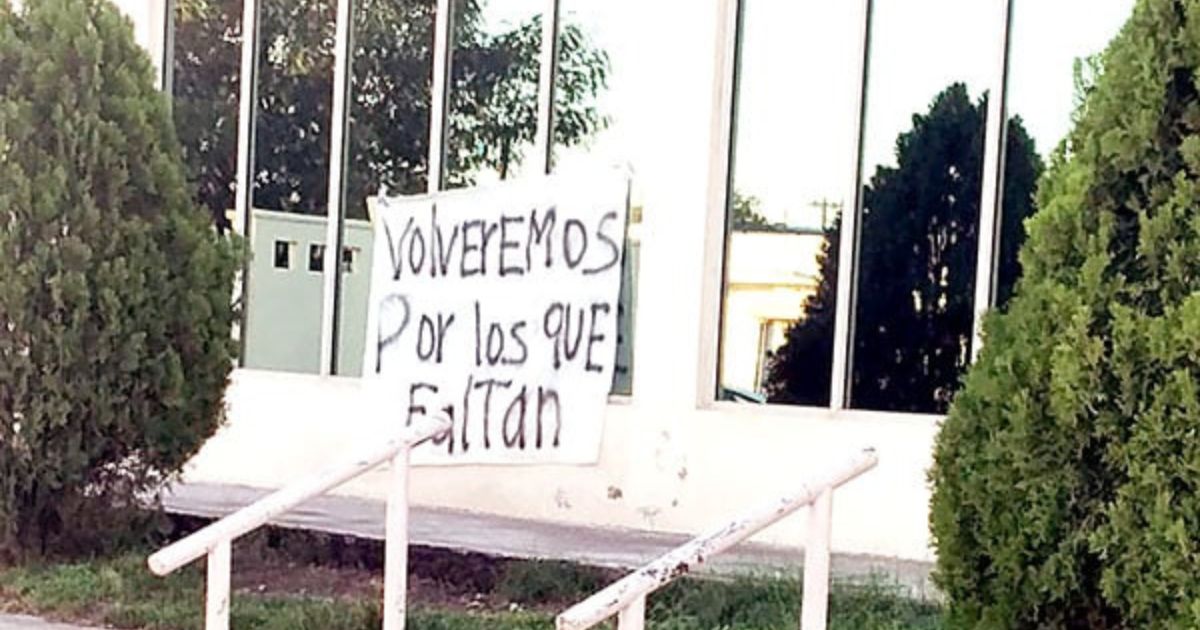 VolverEMOS
Por los qUE
FalTan